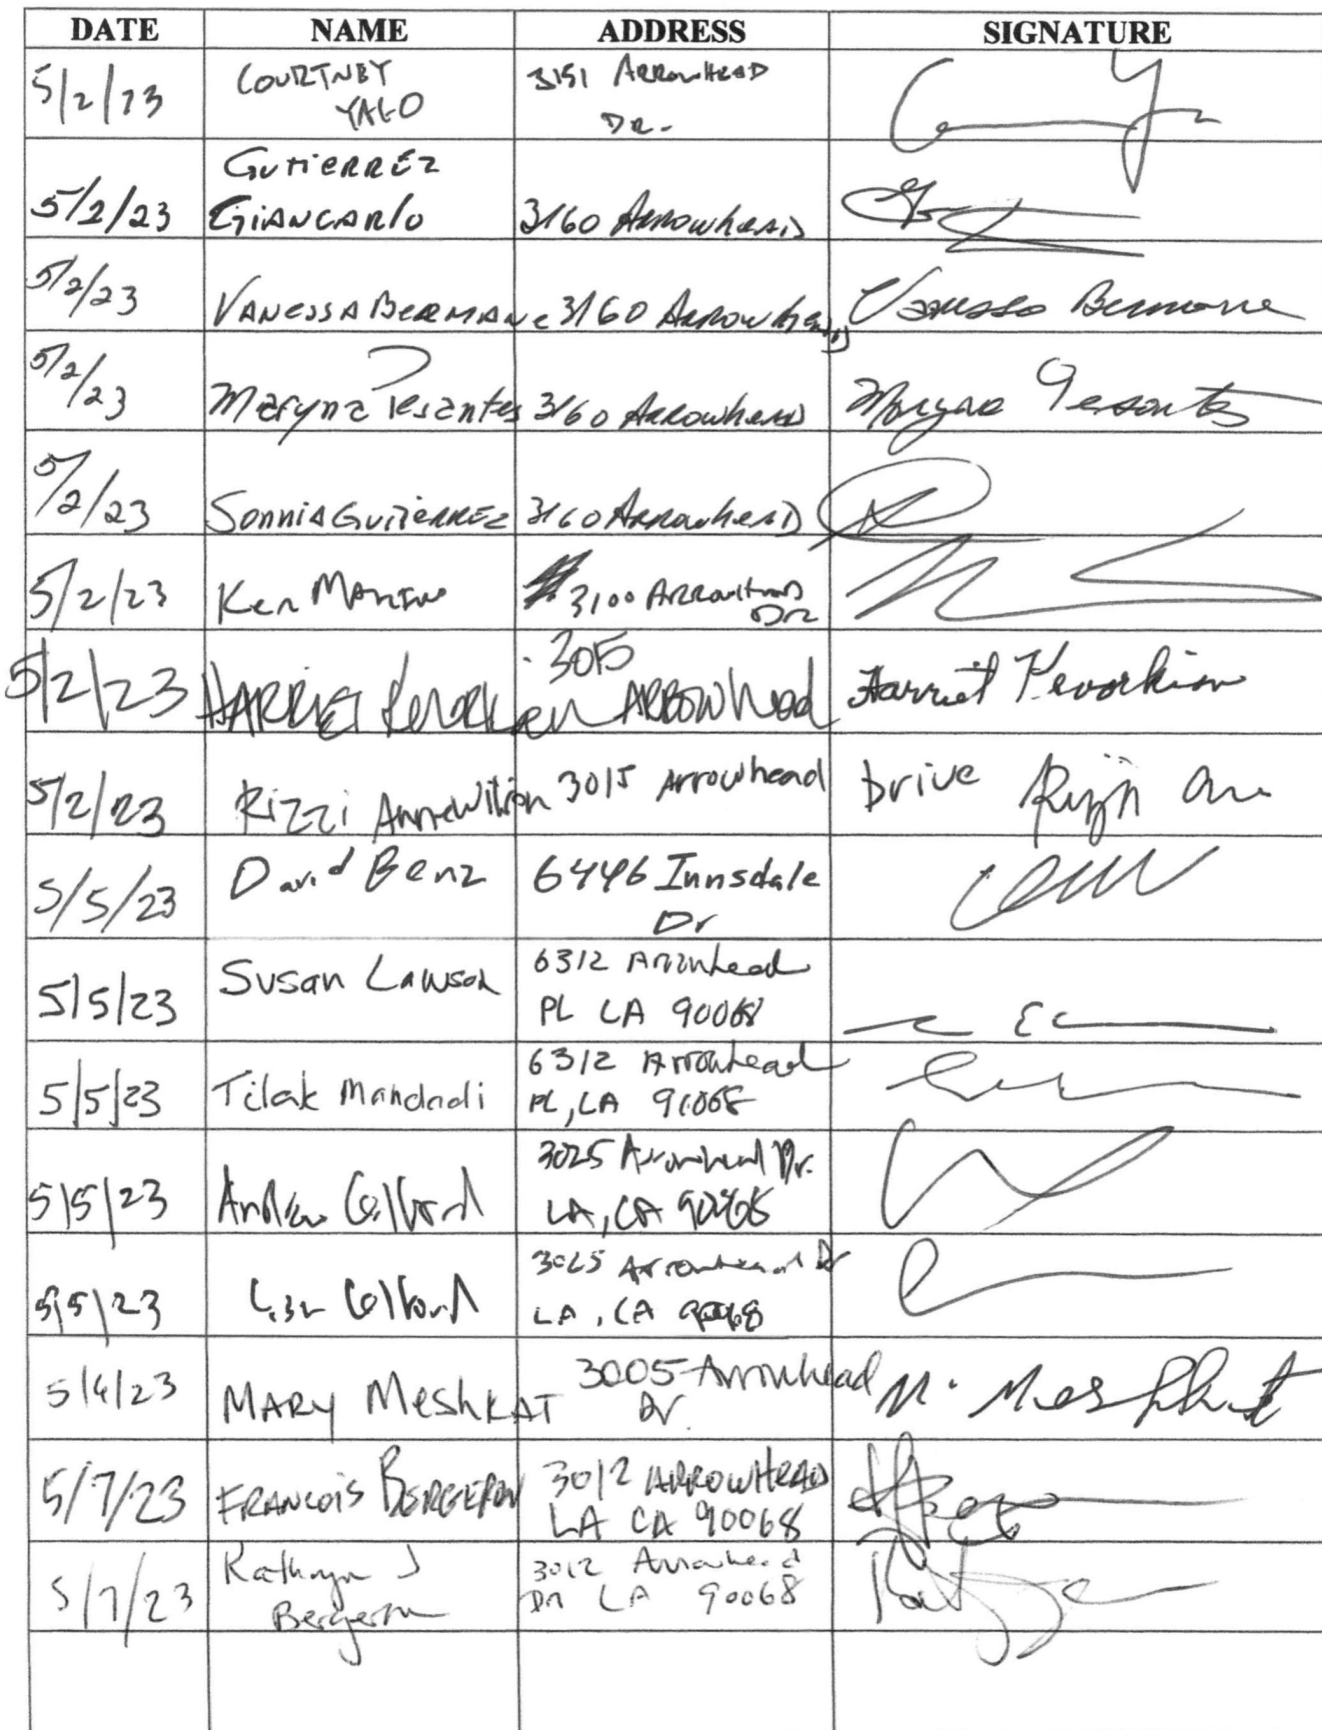 DATE NAME ADDRESS SIGNATURE
5/2/23 COURTNEY 3151 ARROWHEAD
YALO DR.
GUTIERREZ
5/2/23 GIANCARLO 3160 ARROWHEAD
5/2/23 VANESSA BERMANE 3160 ARROWHEAD Vanessa Bermane
5/2/23 Maryna Pesantes 3160 ARROWHEAD Maryna Pesantes
5/2/23 SONNIA GUTIERREZ 3160 ARROWHEAD
5/2/23 Ken 3100 ARROWHEAD
DR
5/2/23 HARRIET Kevorkian 3015 Harriet Kevorkian
ARROWhead
5/2/23 Rizzi 3015 Arrowhead Drive
5/5/23 David Benz 6446 Innsdale
Dr
5/5/23 Susan Lawson 6312 Arrowhead
PL LA 90068
5/5/23 Tilak Mandadi 6312 Arrowhead
PL, LA 90068
5/5/23 Andrew Gelband 3025 Arrowhead Dr.
LA, CA 90068
5/5/23 3025 Arrowhead Dr
LA, CA 90068
5/4/23 MARY MeshKAT 3005 Arrowhead M. Meshkat
Dr.
5/7/23 FRANCOIS BERGERON 3012 ARROWHEAD
LA CA 90068
5/7/23 Kathryn J 3012 Arrowhead
Bergeron DR LA 90068